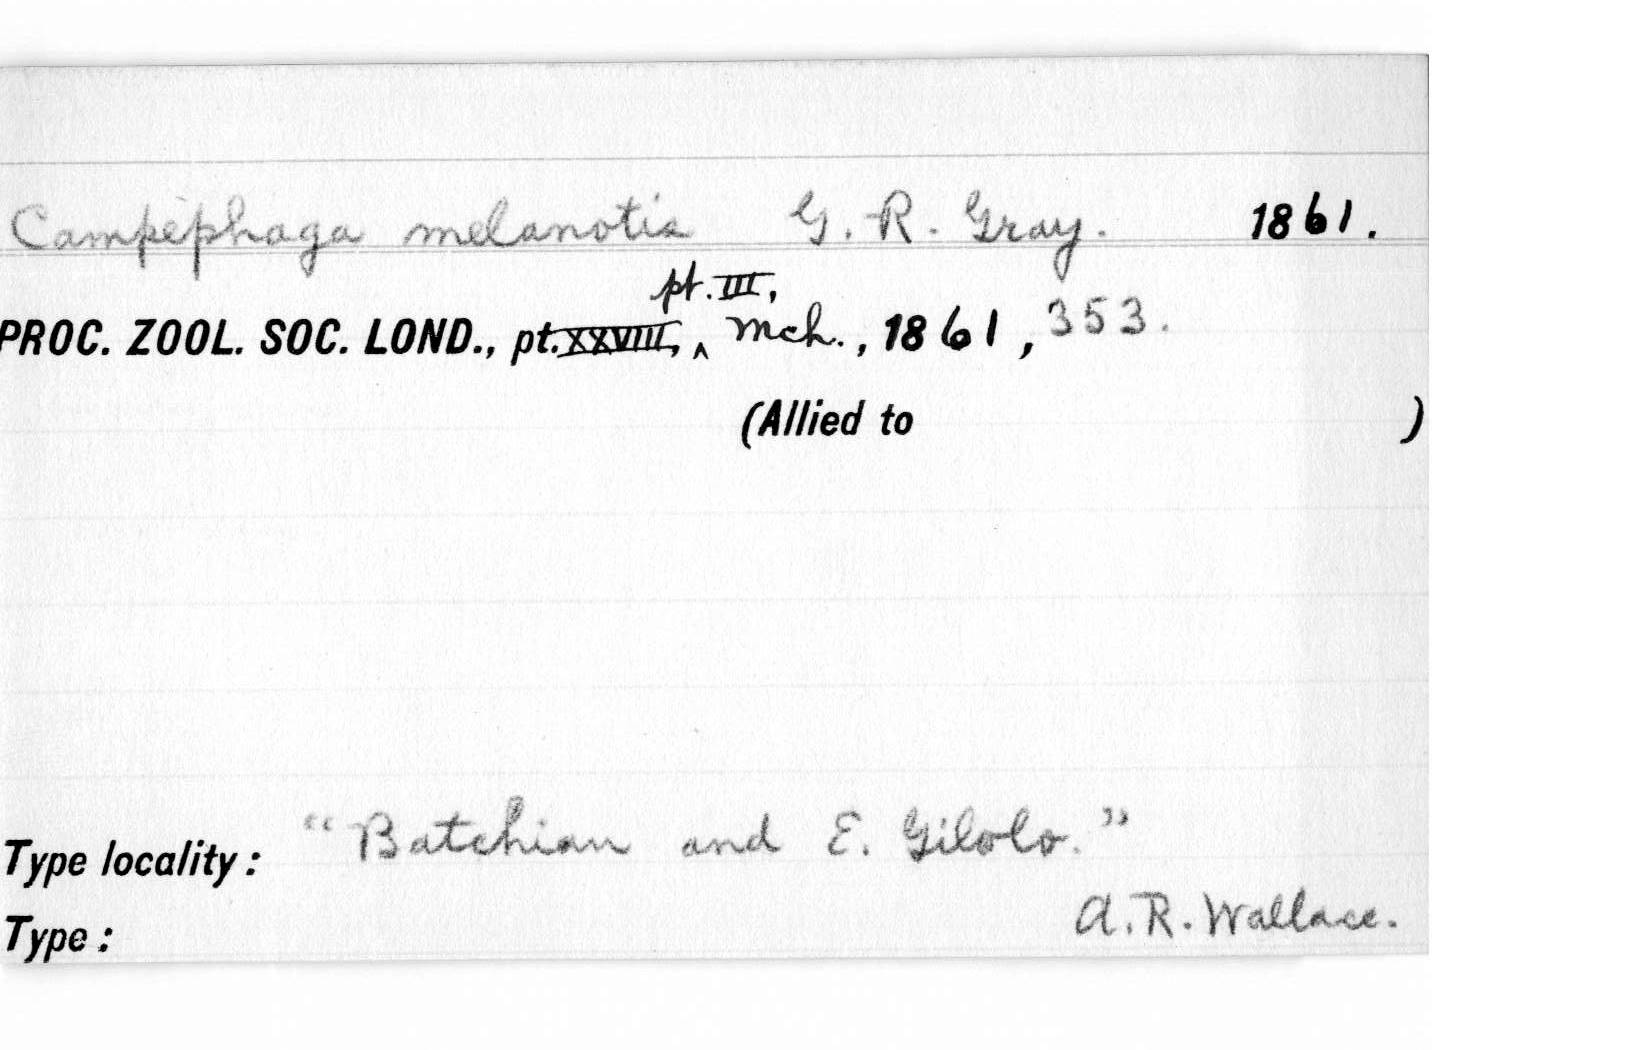 Campephaga melanotis G. R. Gray. 1861.
pt. III,
PROC. ZOOL. SOC. LOND., pt. XXVIII, ^ Mch., 1861, 353.
(Allied to )
Type locality: "Batchian and E. Gilolo."
A. R. Wallace.
Type: